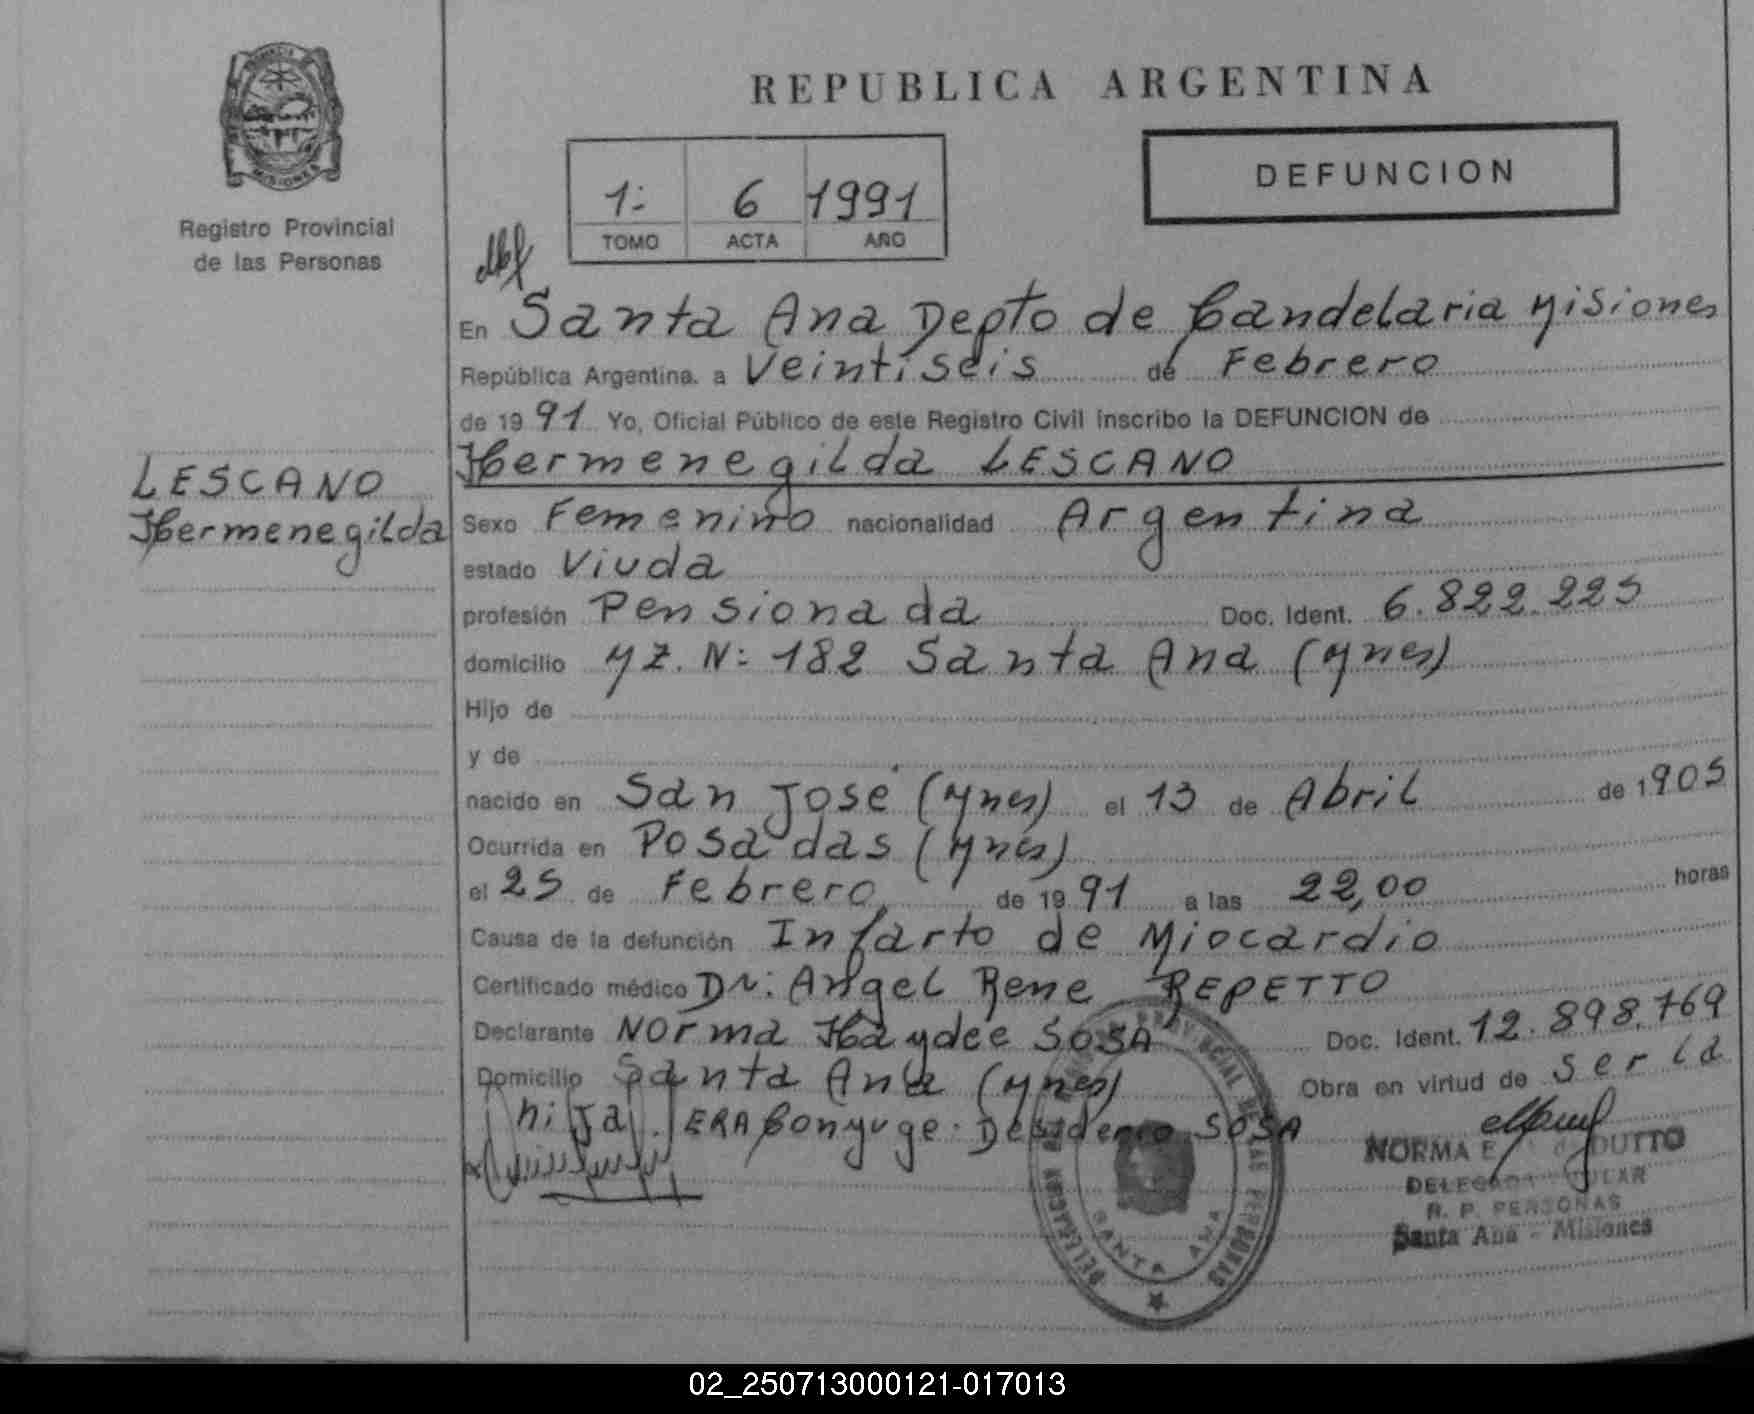 PROVINCIA
MISIONES
Registro Provincial
de las Personas
LESCANO
Hermenegilda
REPUBLICA ARGENTINA
1: 6 1991
TOMO ACTA AÑO
DEFUNCION
En Santa Ana Depto de Candelaria Misiones
República Argentina. a Veintiseis de Febrero
de 19 91 Yo, Oficial Público de este Registro Civil inscribo la DEFUNCION de
Hermenegilda LESCANO
Sexo Femenino nacionalidad Argentina
estado Viuda
profesión Pensionada Doc. Ident. 6.822.225
domicilio Mz. N: 182 Santa Ana (Mnes)
Hijo de
y de
nacido en San José (Mnes) el 13 de Abril de 1905
Ocurrida en Posadas (Mnes)
el 25 de Febrero de 19 91 a las 22,00 horas
Causa de la defunción Infarto de Miocardio
Certificado médico Dr: Angel Rene REPETTO
Declarante Norma Haydee SOSA Doc. Ident. 12.898.769
Domicilio Santa Ana (Mnes) Obra en virtud de ser la
hija. ERA Conyuge. Desiderio SOSA
NORMA E. DUTTO
DELEGADA TITULAR
R. P. PERSONAS
Santa Ana - Misiones
DELEGACION PROVINCIAL DE LAS PERSONAS
SANTA ANA
02_250713000121-017013